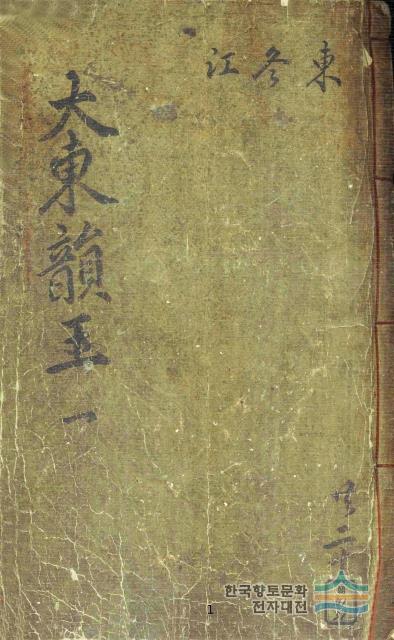 東冬江
大東韻玉一
共二十
1
한국향토문화
전자대전